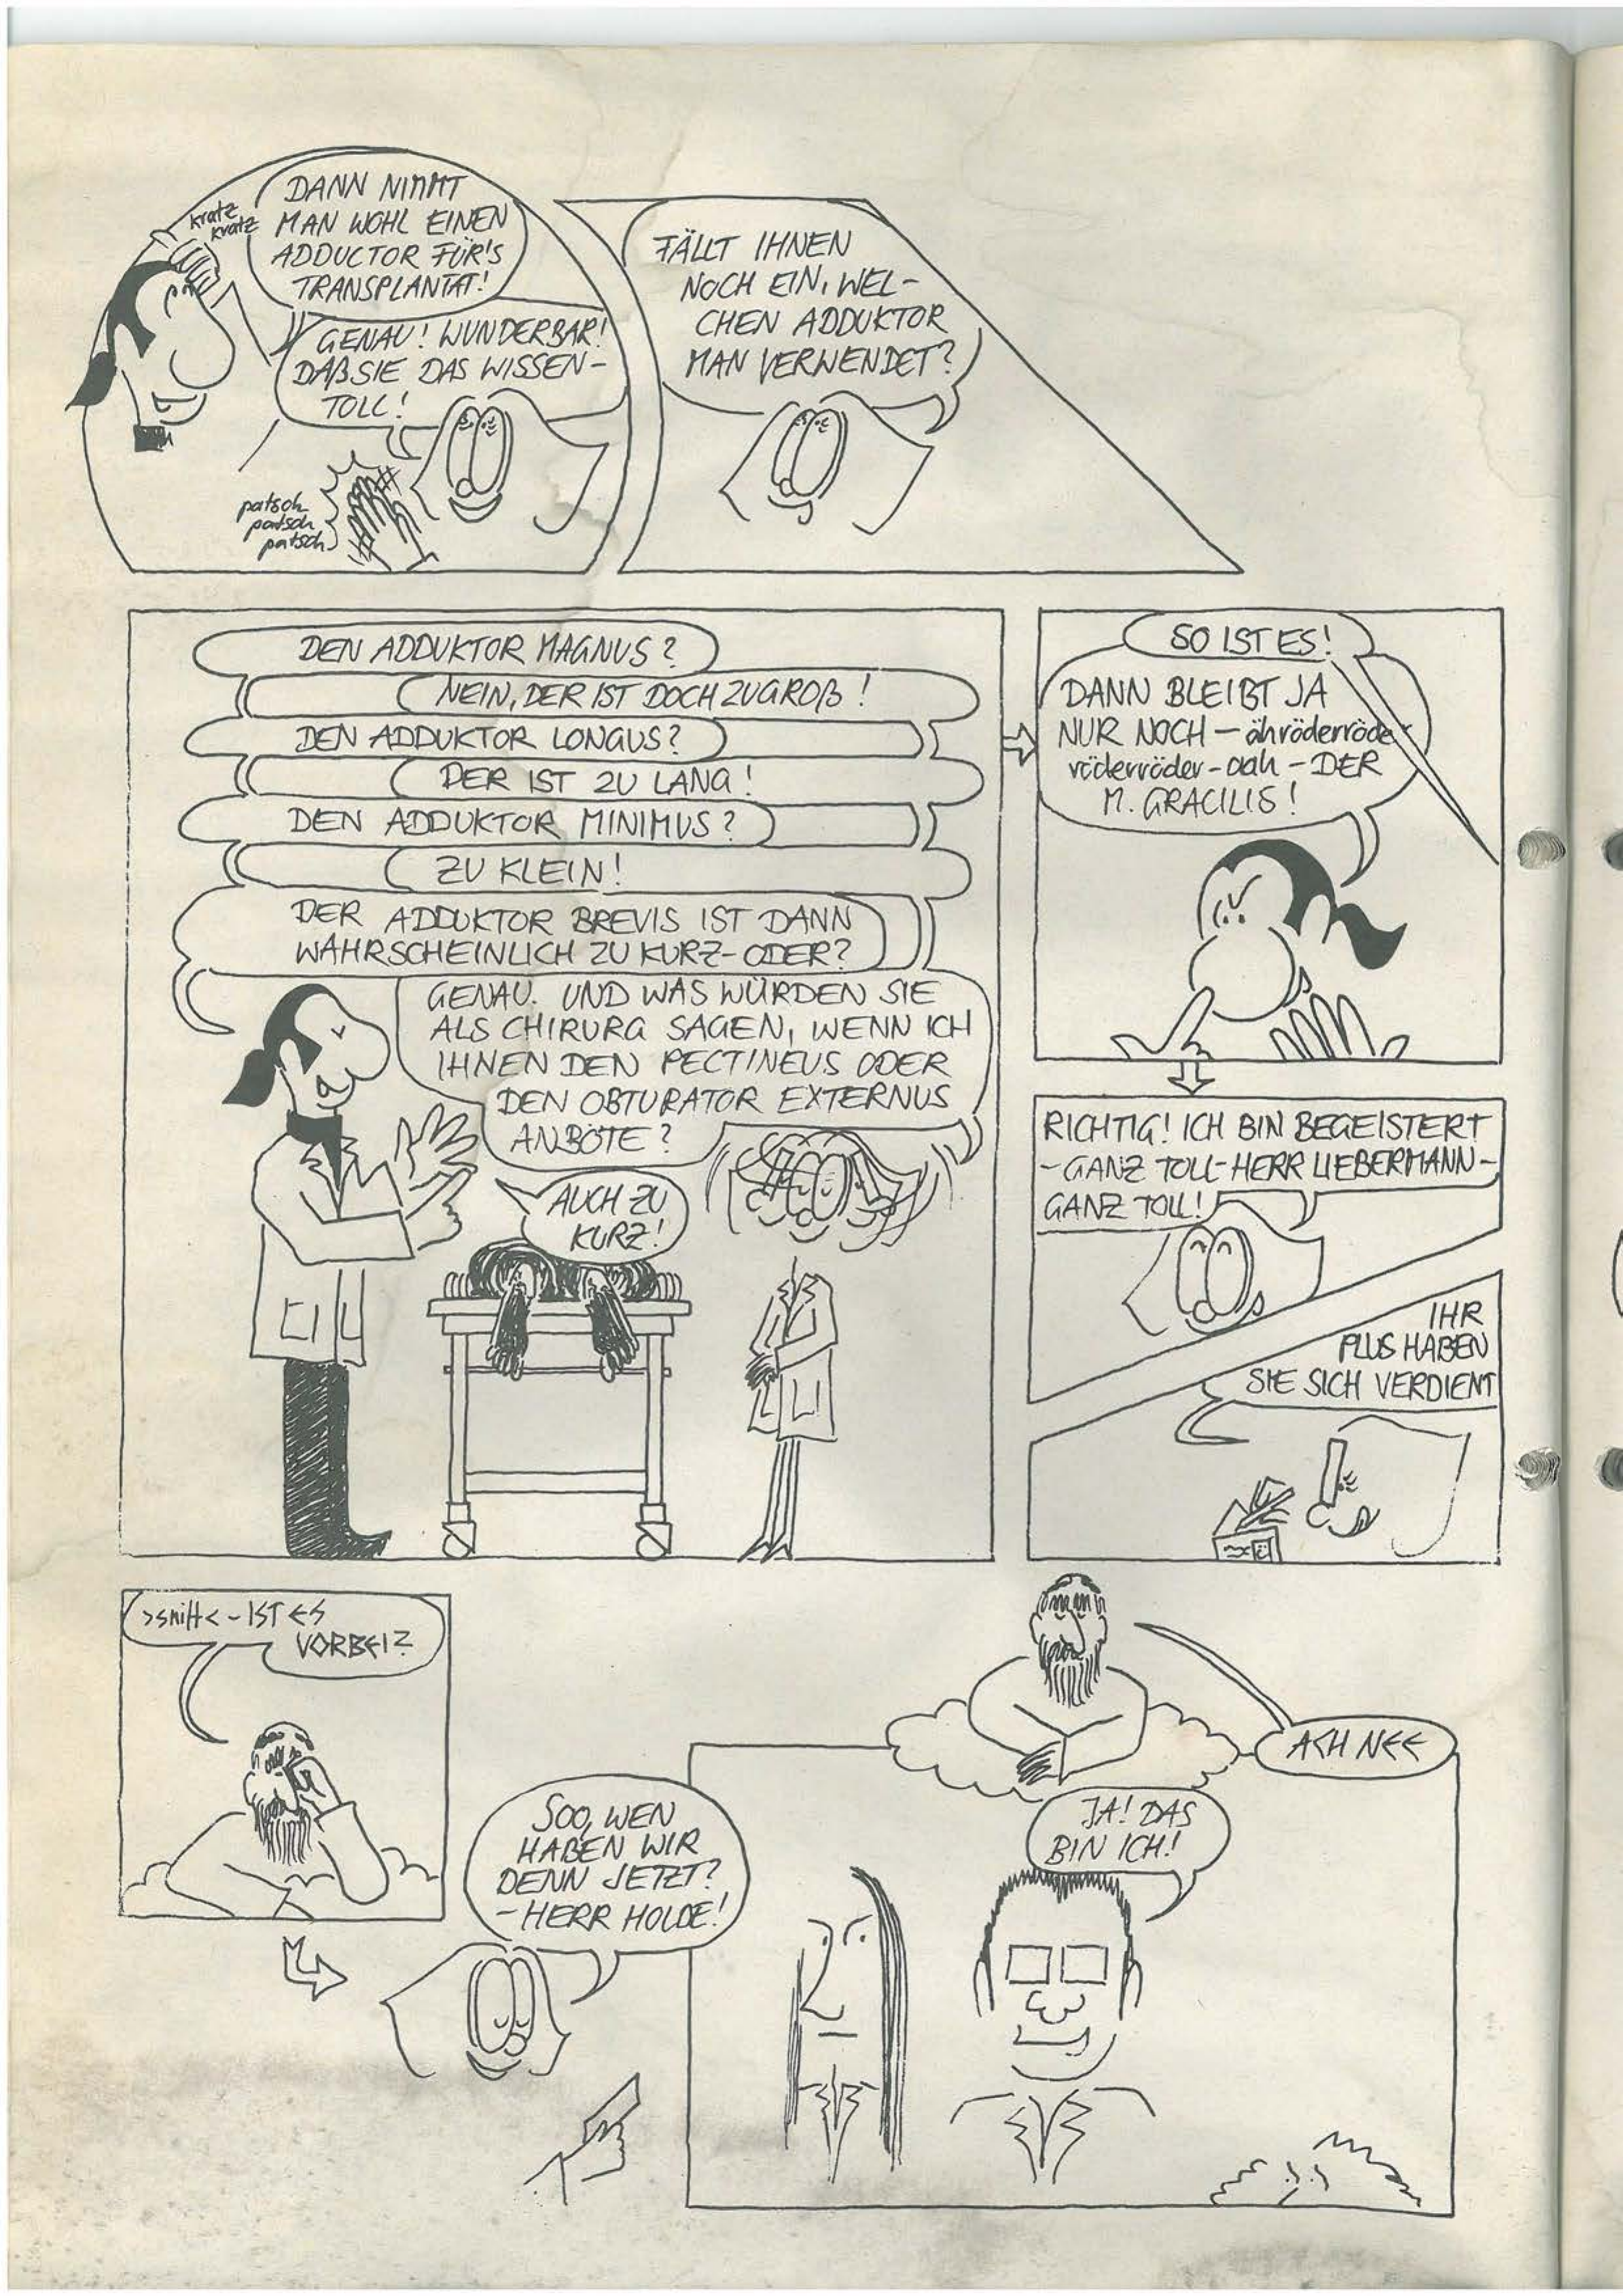 kratz
kratz
DANN NIMMT
MAN WOHL EINEN
ADDUCTOR FÜR'S
TRANSPLANTAT!
GENAU! WUNDERBAR!
DAß SIE DAS WISSEN-
TOLL!
patsch
patsch
patsch
FÄLLT IHNEN
NOCH EIN, WEL-
CHEN ADDUKTOR
MAN VERWENDET?
DEN ADDUKTOR MAGNUS?
NEIN, DER IST DOCH ZU GROß!
DEN ADDUKTOR LONGUS?
DER IST ZU LANG!
DEN ADDUKTOR MINIMUS?
ZU KLEIN!
DER ADDUKTOR BREVIS IST DANN
WAHRSCHEINLICH ZU KURZ-ODER?
GENAU. UND WAS WÜRDEN SIE
ALS CHIRURG SAGEN, WENN ICH
IHNEN DEN PECTINEUS ODER
DEN OBTURATOR EXTERNUS
ANBÖTE?
AUCH ZU
KURZ!
SO IST ES!
DANN BLEIBT JA
NUR NOCH - ähröderröder
röderröder-aah-DER
M. GRACILIS!
RICHTIG! ICH BIN BEGEISTERT
-GANZ TOLL-HERR LIEBERMANN-
GANZ TOLL!
IHR
PLUS HABEN
SIE SICH VERDIENT
>sniff<-IST ES
VORBEI?
ACH NEE
SOO, WEN
HABEN WIR
DENN JETZT?
-HERR HOLDE!
JA! DAS
BIN ICH!